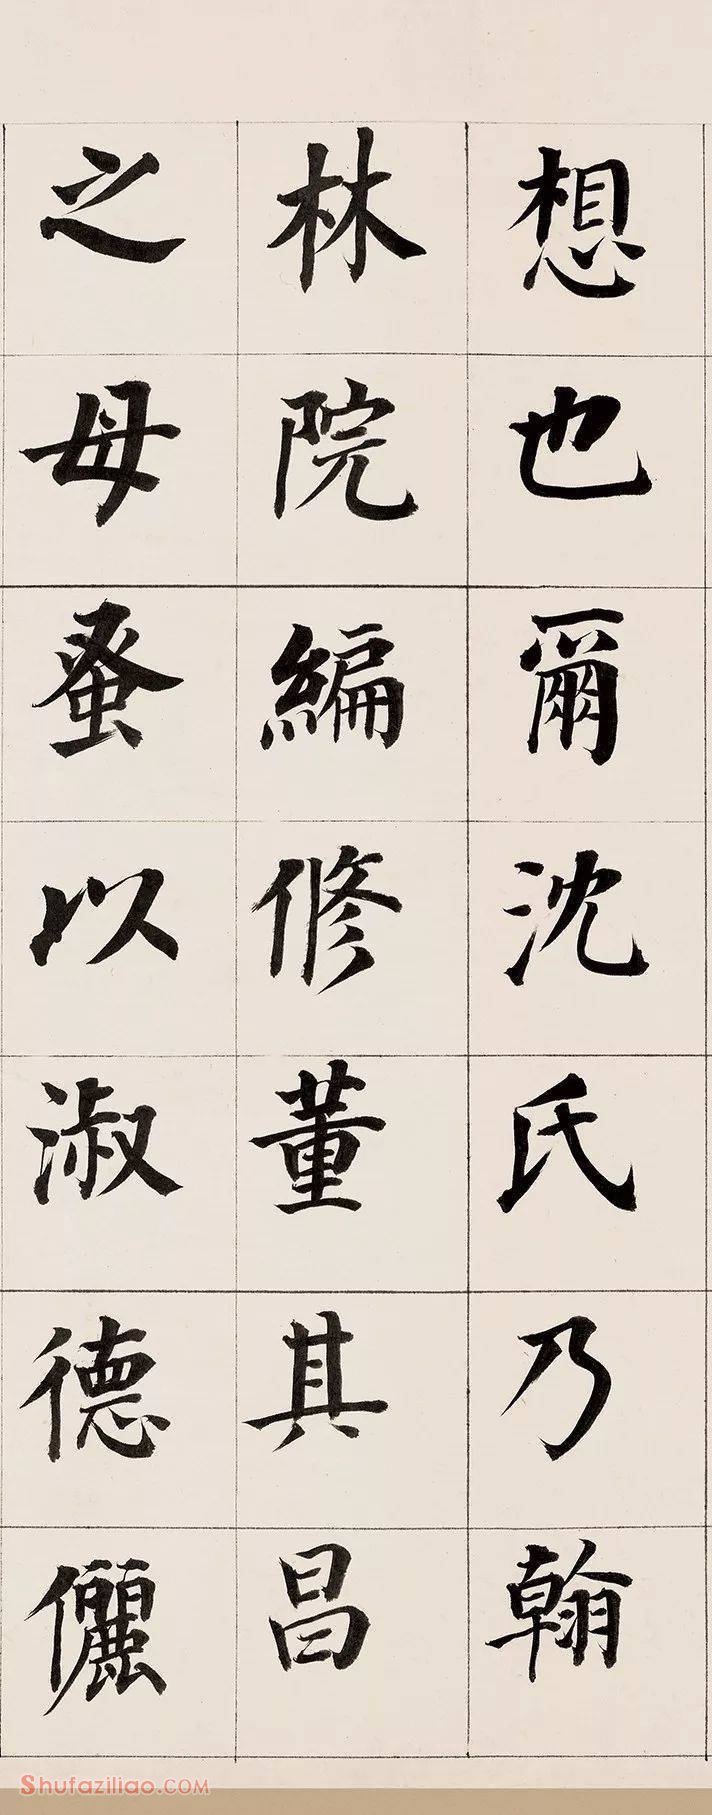 想也爾沈氏乃翰
林院編修董其昌
之母蚤以淑德儷
Shufaziliao.COM